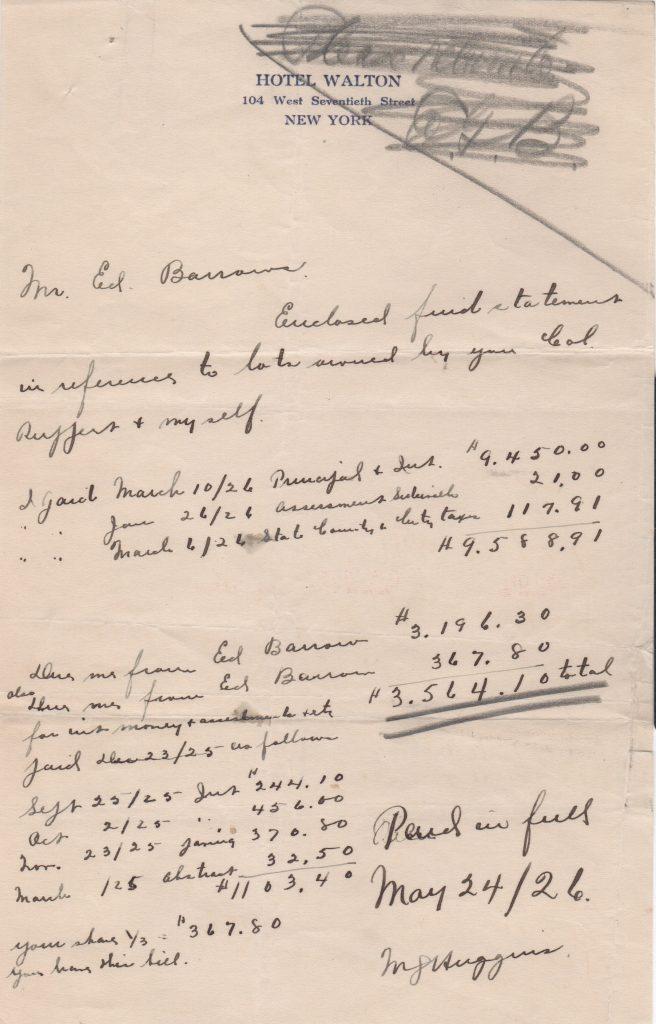 Please
E. G. B.
HOTEL WALTON
104 West Seventieth Street
NEW YORK
Mr. Ed. Barrows.
Enclosed find statement
in reference to lots owned by you Col.
Ruppert & myself.
I paid March 10/26 Principal & Int. $9.450.00
" " June 26/26 assessment sidewalk 21.00
" " March 6/26 State County & City taxes 117.91
$9.588.91
Dues me from Ed Barrow $3.196.30
also Dues me from Ed Barrow 367.80
$3.564.10 total
for int money & assessments & etc
paid Dec 23/25 as follows
Sept 25/25 Int $244.10
Oct 2/25 " 456.00
Nov. 23/25 paving 370.80
March /25 abstract 32.50
$1103.40
your share 1/3 = $367.80
You have this bill.
Paid in full
May 24/26.
MJHuggins.